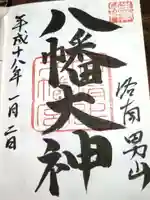 洛南 男山
八幡大神
平成十八年 一月二日